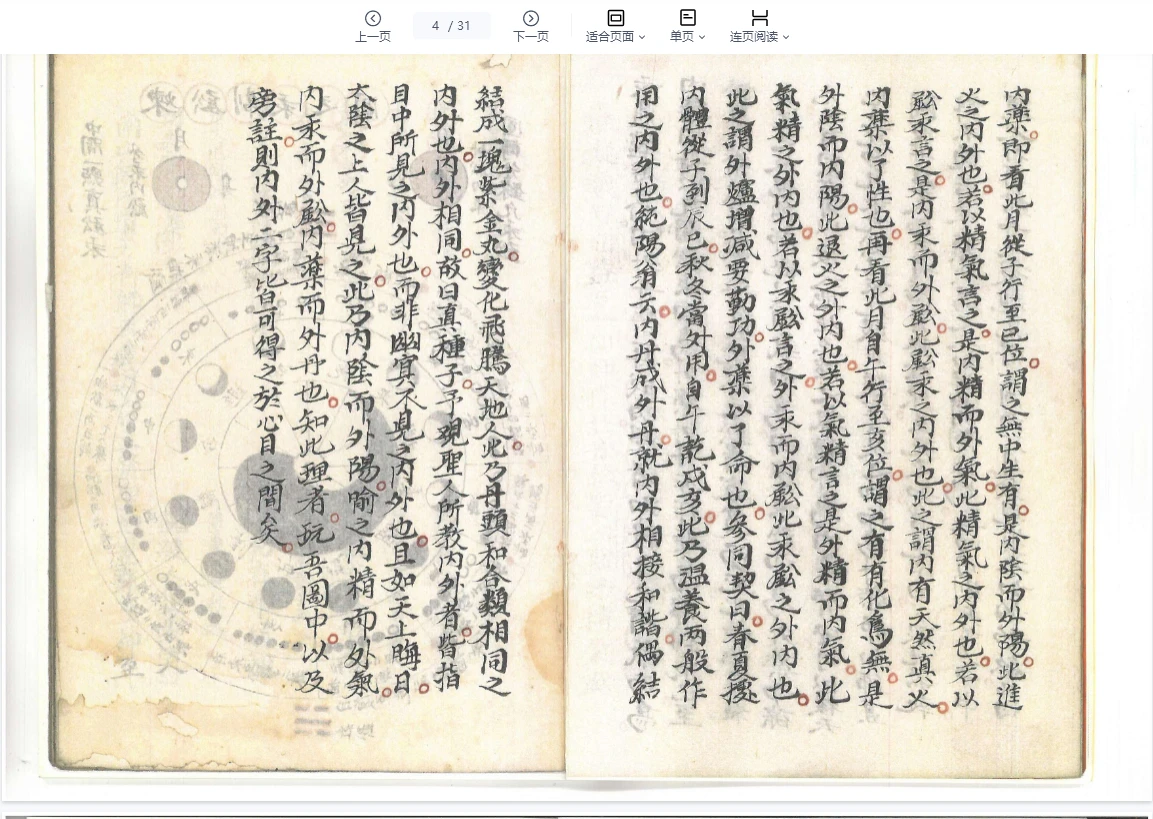 上一页
4 / 31
下一页
适合页面
单页
连页阅读
内藥即看此月從子行至巳位謂之無中生有是内陰而外陽此進
火之内外也若以精氣言之是内精而外氣此精氣之内外也若以
鈆汞言之是内汞而外鈆此鈆汞之内外也此之謂内有天然真火
内藥以了性也再看此月自午行至亥位謂之有有化爲無是
外陰而内陽此退火之外内也若以氣精言之是外精而内氣此
氣精之外内也若以汞鈆言之外汞而内鈆此汞鈆之外内也
此之謂外爐增减要動功外藥以了命也參同契曰春夏據
内體從子到辰巳秋冬當外用自午乾戌亥此乃温養两般作
用之内外也純陽翁云内丹成外丹就内外相接和諧偶結
結成一塊紫金丸變化飛騰天地人此乃丹頭和合類相同之
内外也内外相同故曰真種子予观聖人所教内外者皆指
目中所見之内外也而非幽冥不見之内外也且如天上晦日
太陰之上人皆見之此乃内陰而外陽喻之内精而外氣
内汞而外鈆内藥而外丹也知此理者玩吾圖中以及
旁註則内外二字皆可得之於心目之間矣